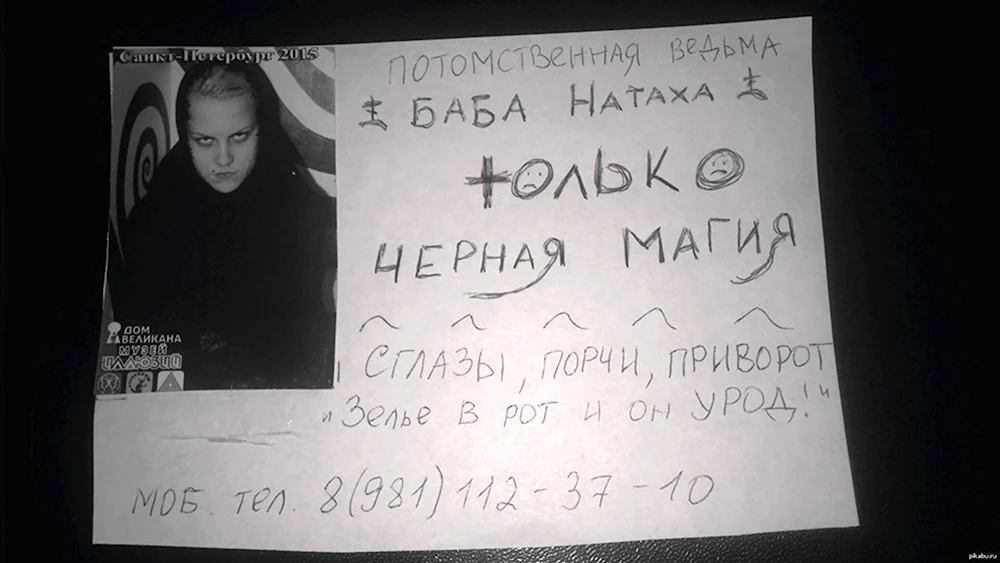 Санкт-Петербург 2015
ДОМ
ВЕЛИКАНА
МУЗЕЙ
ИЛЛЮЗИЙ
ПОТОМСТВЕННАЯ ВЕДЬМА
БАБА НАТАХА
ТОЛЬКО
ЧЕРНАЯ МАГИЯ
СГЛАЗЫ, ПОРЧИ, ПРИВОРОТ
"Зелье в рот и он УРОД!"
МОБ. тел. 8(981)112-37-10
pikabu.ru